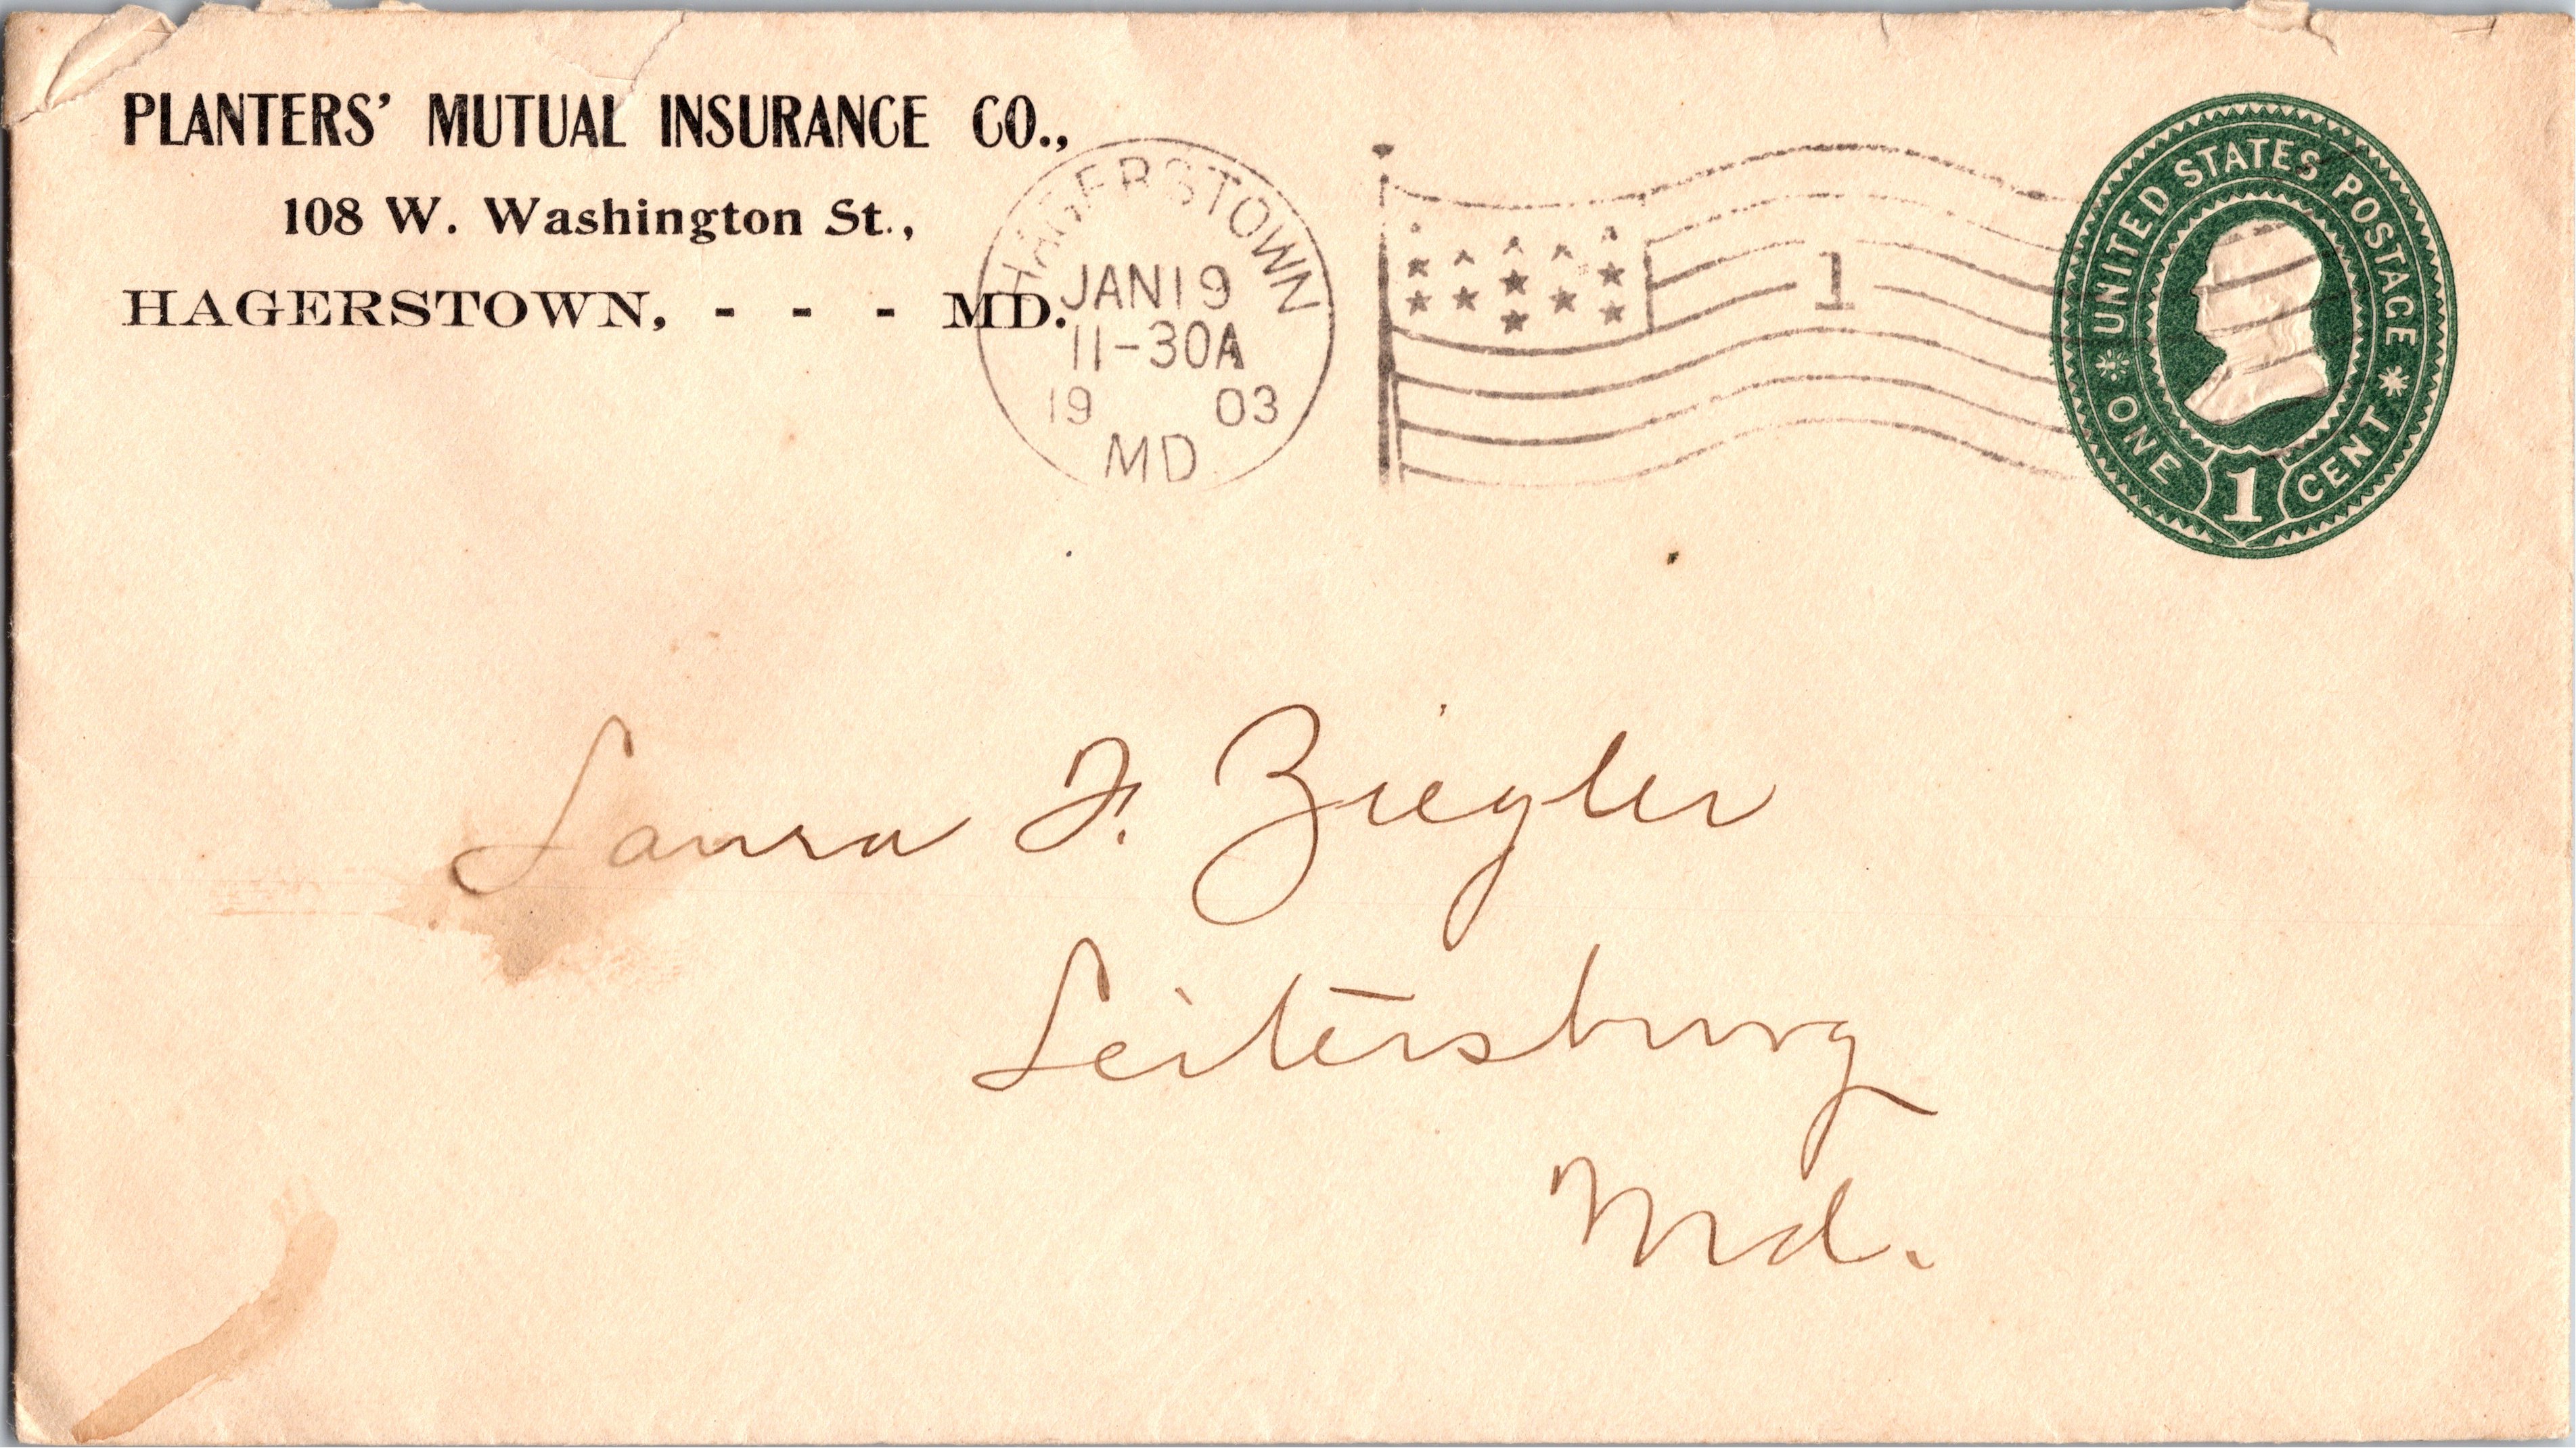 PLANTERS' MUTUAL INSURANCE CO.,
108 W. Washington St.,
HAGERSTOWN, - - - MD.
HAGERSTOWN
JAN 19
11-30A
19 03
MD
1
UNITED STATES POSTAGE
ONE 1 CENT
Laura F. Ziegler
Leitersburg
Md.